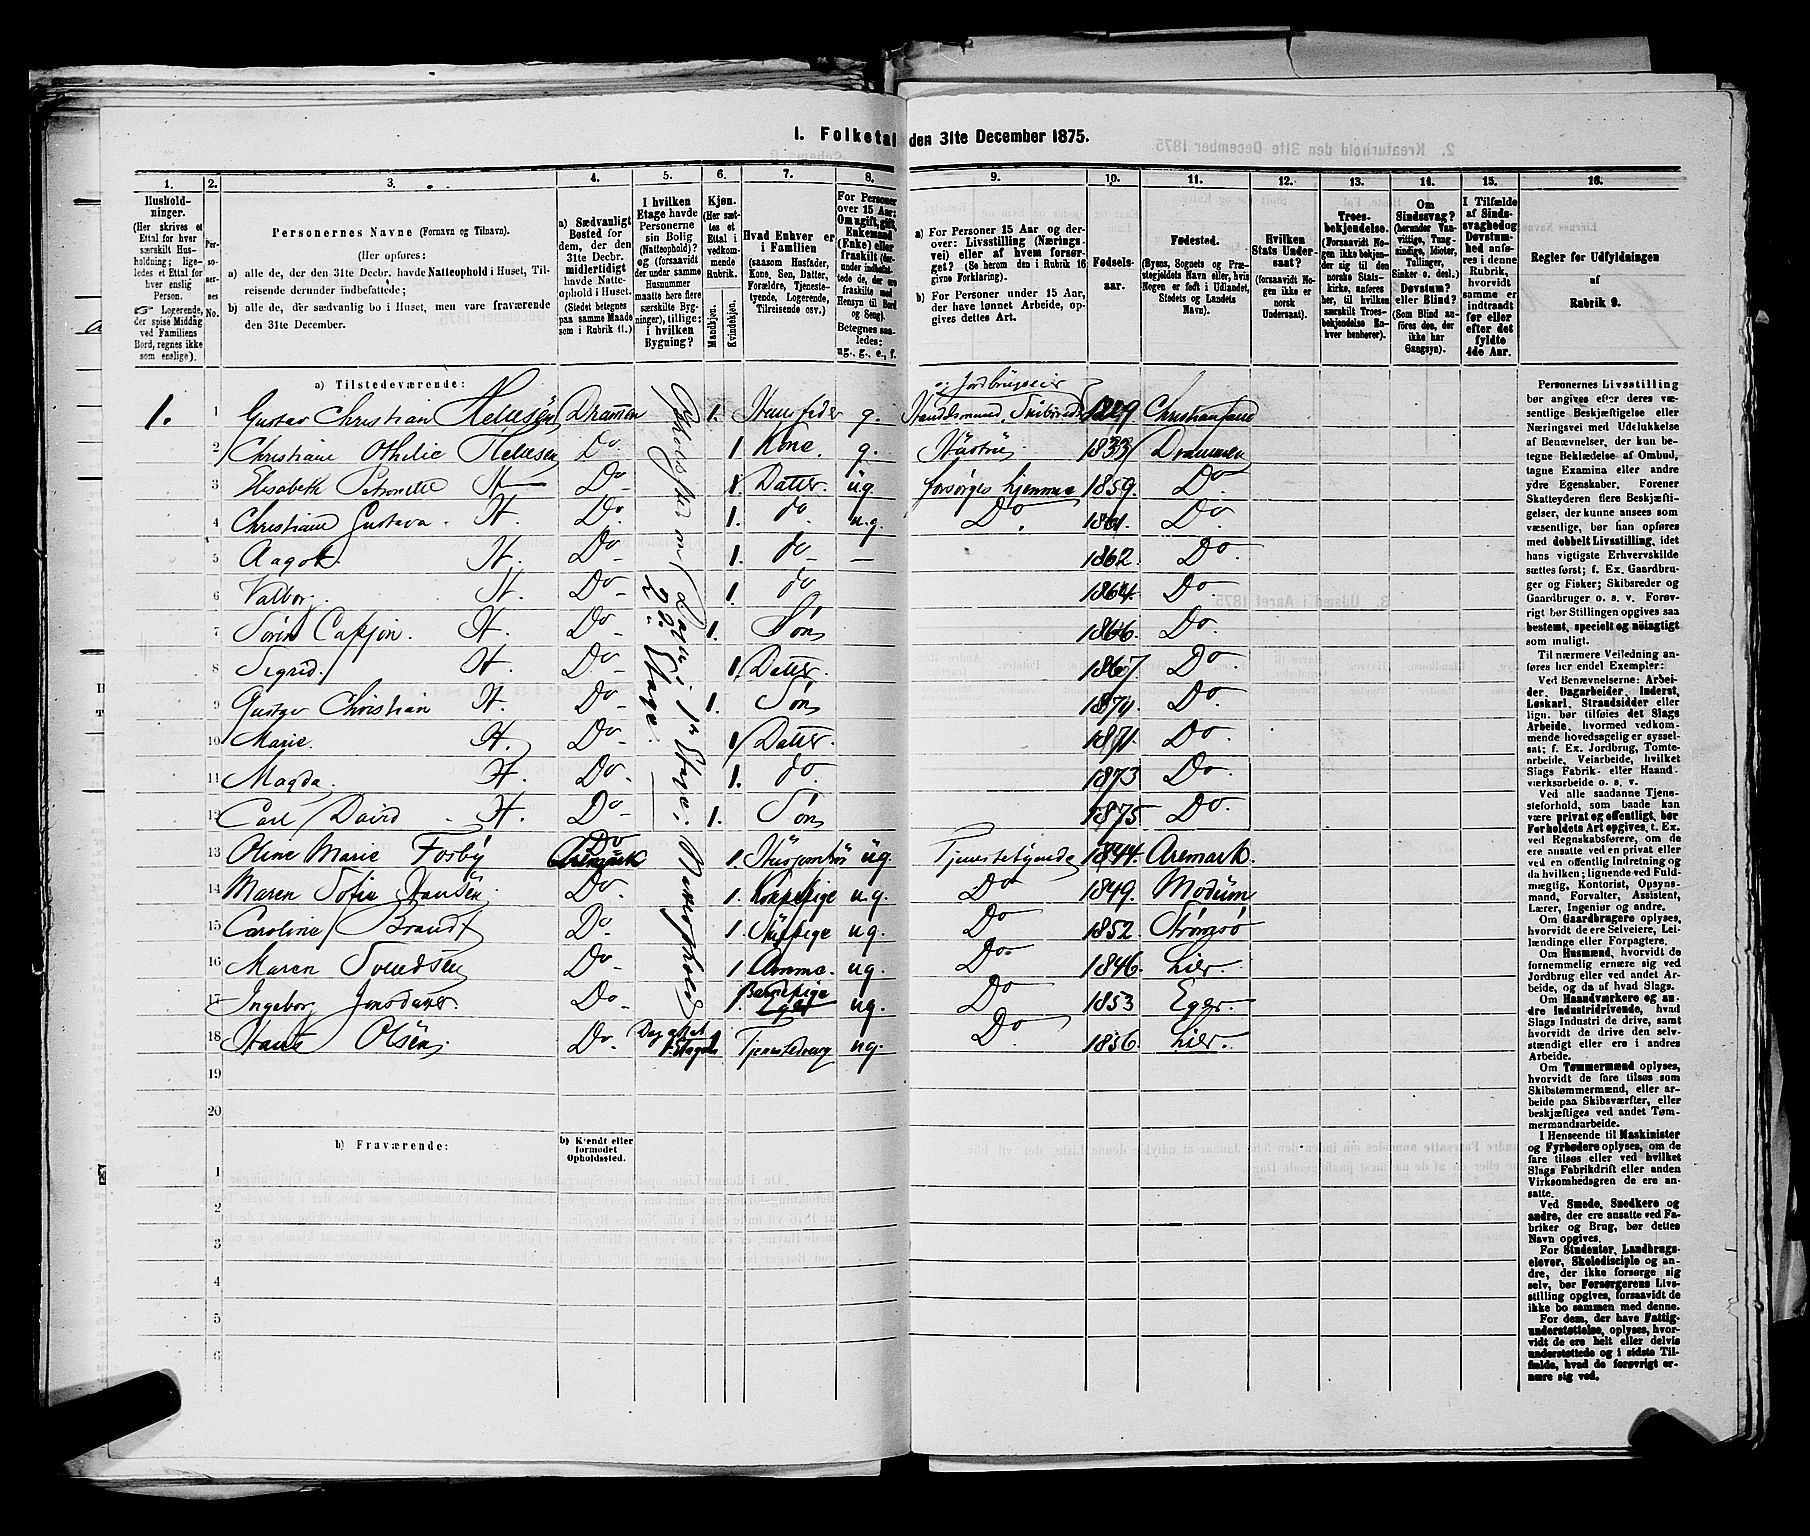 1. Folketal den 31te December 1875.
1. 2. 3. 4. 5. 6. 7. 8. 9. 10. 11. 12. 13. 14. 15. 16.
Hushold-
ninger.
(Her skrives et
Ettal for hver
særskilt Hus-
holdning; lige-
ledes et Ettal for
hver enslig
Person.
☞ Logerende,
der spise Middag
ved Familiens
Bord, regnes ikke
som enslige).
Per-
soner-
nes
No.
Personernes Navne (Fornavn og Tilnavn).
(Her opføres:
a) alle de, der den 31te Decbr. havde Natteophold i Huset, Til-
reisende derunder indbefattede;
b) alle de, der sædvanlig bo i Huset, men vare fraværende
den 31te December.
a) Sædvanligt
Bosted for
dem, der den
31te Decbr.
midlertidigt
havde Natte-
ophold i Huset.
(Stedet betegnes
paa samme Maade
som i Rubrik 11.)
I hvilken
Etage havde
Personerne
sin Bolig
(Natteophold)?
og (forsaavidt
der under samme
Husnummer
maatte høre flere
særskilte Byg-
ninger), tillige:
i hvilken
Bygning?
Kjøn.
(Her sæt-
tes et
Ettal i
vedkom-
mende
Rubrik.
Mandkjøn.
Kvindekjøn.
Hvad Enhver er
i Familien
(saasom Husfader,
Kone, Søn, Datter,
Forældre, Tjeneste-
tyende, Logerende,
Tilreisende osv.)
For Personer
over 15 Aar:
Om ugift, gift,
Enkemand
(Enke) eller
fraskilt (der-
under indbefat-
tede de, der ere
fraskilte med
Hensyn til Bord
og Seng).
Betegnes saa-
ledes:
ug., g., e., f.
a) For Personer 15 Aar og der-
over: Livsstilling (Nærings-
vei) eller af hvem forsør-
get? (Se herom den i Rubrik 16
givne Forklaring).
b) For Personer under 15 Aar,
der have lønnet Arbeide, op-
gives dettes Art.
Fødsels-
aar.
Fødested.
(Byens, Sognets og Præ-
stegjeldets Navn eller, hvis
Nogen er født i Udlandet,
Stedets og Landets
Navn).
Hvilken
Stats Under-
saat?
(forsaavidt No-
gen ikke er
norsk
Undersaat).
Troes-
bekjendelse.
(Forsaavidt No-
gen ikke bekjen-
der sig til den
norske Stats-
kirke, anføres
her, til hvilken
særskilt Troes-
bekjendelse En-
hver henhører).
Om
Sindssvag?
(herunder Van-
vittige, Tung-
sindige, Idioter,
Sinker o. desl.)
Døvstum?
eller Blind?
(Som Blind an-
føres den, der
ikke har
Gangsyn).
I Tilfælde
af Sinds-
svaghed og
Døvstum-
hed anfø-
res i denne
Rubrik,
hvorvidt
samme er
indtraadt
før eller
efter det
fyldte
4de Aar.
Regler for Udfyldningen
af
Rubrik 9.
a) Tilstedeværende:
og Jordbrugseier
1. 1 Gustav Christian Helliesen Drammen 1. Huusfader g. Handelsmand, Skibsreder 1829 Christiansand
2 Christiane Othilie Helliesen Do 1 Kone. g. Hustru 1833 Drammen
3 Elisabeth Petronelle H Do 1. Datter. ug. forsørges hjemme 1859. Do
4 Christiane Gustava. H. Do 1. do. u.g. Do. 1861. Do.
5 Aagot. H. Do 1. do — 1862. Do.
6 Valborg. H. Do 1. do 1864. Do
7 Sørin H. Do 1. Søn 1866. Do.
8 Sigrid. H. Do 1. Datter. 1867. Do.
9 Gustav Christian H. Do 1. Søn 1874. Do.
10 Marie. H. Do 1 Datter. 1871. Do.
11 Magda H. Do. 1. do. 1873 Do.
12 Carl David H. Do 1. Søn 1875. Do.
13 Oline Marie Fosby Aremark Do 1. Husjomfrø ug. Tjenestetyende 1844. Aremark.
14 Maren Sofie Hansen. Do. 1. Kokkepige u.g. Do 1849. Modum
15 Caroline Brandt Do. 1. Stuepige ug. Do 1852. Strømsø
16 Maren Svendsen Do. 1 Amme. ug. Do 1846. Lier.
17 Ingebor Jonsdatter. Do. 1. Barnepige Eger ug. Do 1853 Eger.
18 Hans Olsen. Do. 1 Tjenestedreng ug. Do. 1856. Lier.
19
20
b) Fraværende:
b) Kjendt eller
formodet
Opholdssted.
1
2
3
4
5
6
Personernes Livsstilling
bør angives efter deres væ-
sentlige Beskjæftigelse eller
Næringsvei med Udelukkelse
af Benævnelser, der kun be-
tegne Beklædelse af Ombud,
tagne Examina eller andre
ydre Egenskaber. Forener
Skatteyderen flere Beskjæfti-
gelser, der kunne ansees som
væsentlige, bør han opføres
med dobbelt Livsstilling, idet
hans vigtigste Erhvervskilde
sættes først; f. Ex. Gaardbru-
ger og Fisker; Skibsreder og
Gaardbruger o. s. v. Forøv-
rigt bør Stillingen opgives saa
bestemt, specielt og nøiagtigt
som muligt.
Til nærmere Veiledning an-
føres her endel Exempler:
Ved Benævnelserne: Arbei-
der, Dagarbeider, Inderst,
Løskarl, Strandsidder eller
lign. bør tilføies det Slags
Arbeide, hvormed vedkom-
mende hovedsagelig er syssel-
sat; f. Ex. Jordbrug, Tomte-
arbeide, Veiarbeide, hvilket
Slags Fabrik- eller Haand-
værksarbeide o. s. v.
Ved alle saadanne Tjene-
steforhold, som baade kan
være privat og offentligt, bør
Forholdets Art opgives, t. Ex.
ved Regnskabsførere, om de
ere ansatte ved en privat eller
ved en offentlig Indretning og
da hvilken; lignende ved Fuld-
mægtig, Kontorist, Opsyns-
mand, Forvalter, Assistent,
Lærer, Ingeniør og andre.
Om Gaardbrugere oplyses,
hvorvidt de ere Selveiere, Lei-
lændinge eller Forpagtere.
Om Husmænd, hvorvidt de
fornemmelig ernære sig ved
Jordbrug eller ved andet Ar-
beide, og da af hvad Slags.
Om Haandværkere og an-
dre Industridrivende, hvad
Slags Industri de drive, samt
hvorvidt de drive den selv-
stændigt eller ere i andres
Arbeide.
Om Tømmermænd oplyses,
hvorvidt de fare tilsøs som
Skibstømmermænd, eller ar-
beide paa Skibsværfter, eller
beskjæftiges ved andet Tøm-
mermandsarbeide.
I Henseende til Maskinister
og Fyrbødere oplyses, om de
fare tilsøs eller ved hvilket
Slags Fabrikdrift eller anden
Virksomhedsgren de ere an-
satte.
Ved Smede, Snedkere og
andre, der ere ansatte ved Fa-
briker og Brug, bør dettes
Navn opgives.
For Studenter, Landbrugs-
elever, Skoledisciple og an-
dre, der ikke forsørge sig
selv, bør Forsørgerens Livs-
stilling opgives, forsaavidt de
ikke bo sammen med denne.
For dem, der have Fattig-
understøttelse, oplyses, hvor-
vidt de ere helt eller delvis
understøttede og i sidste Til-
fælde, hvad de forøvrigt er-
nære sig ved.